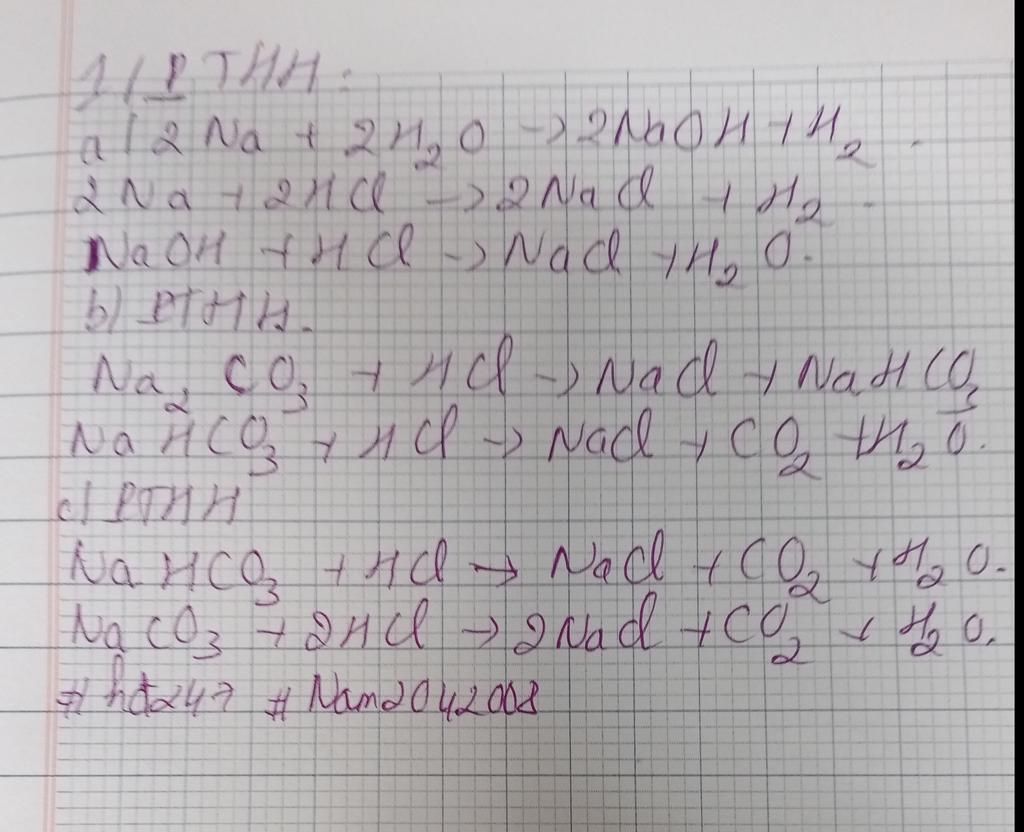 1/ PTHH:
a/ 2Na + 2H₂O -> 2NaOH + H₂.
2Na + 2HCl -> 2NaCl + H₂.
NaOH + HCl -> NaCl + H₂O.
b) PTHH.
Na₂CO₃ + HCl -> NaCl + NaHCO₃
NaHCO₃ + HCl -> NaCl + CO₂ + H₂O.
c) PTHH
NaHCO₃ + HCl -> NaCl + CO₂ + H₂O.
NaCO₃ + 2HCl -> 2NaCl + CO₂ + H₂O.
#hd247 #Nam2042008